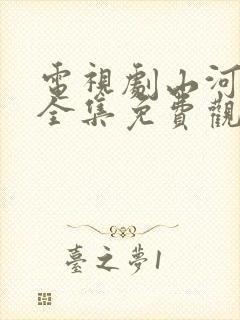 電視劇山河
全集免費觀
臺之夢1